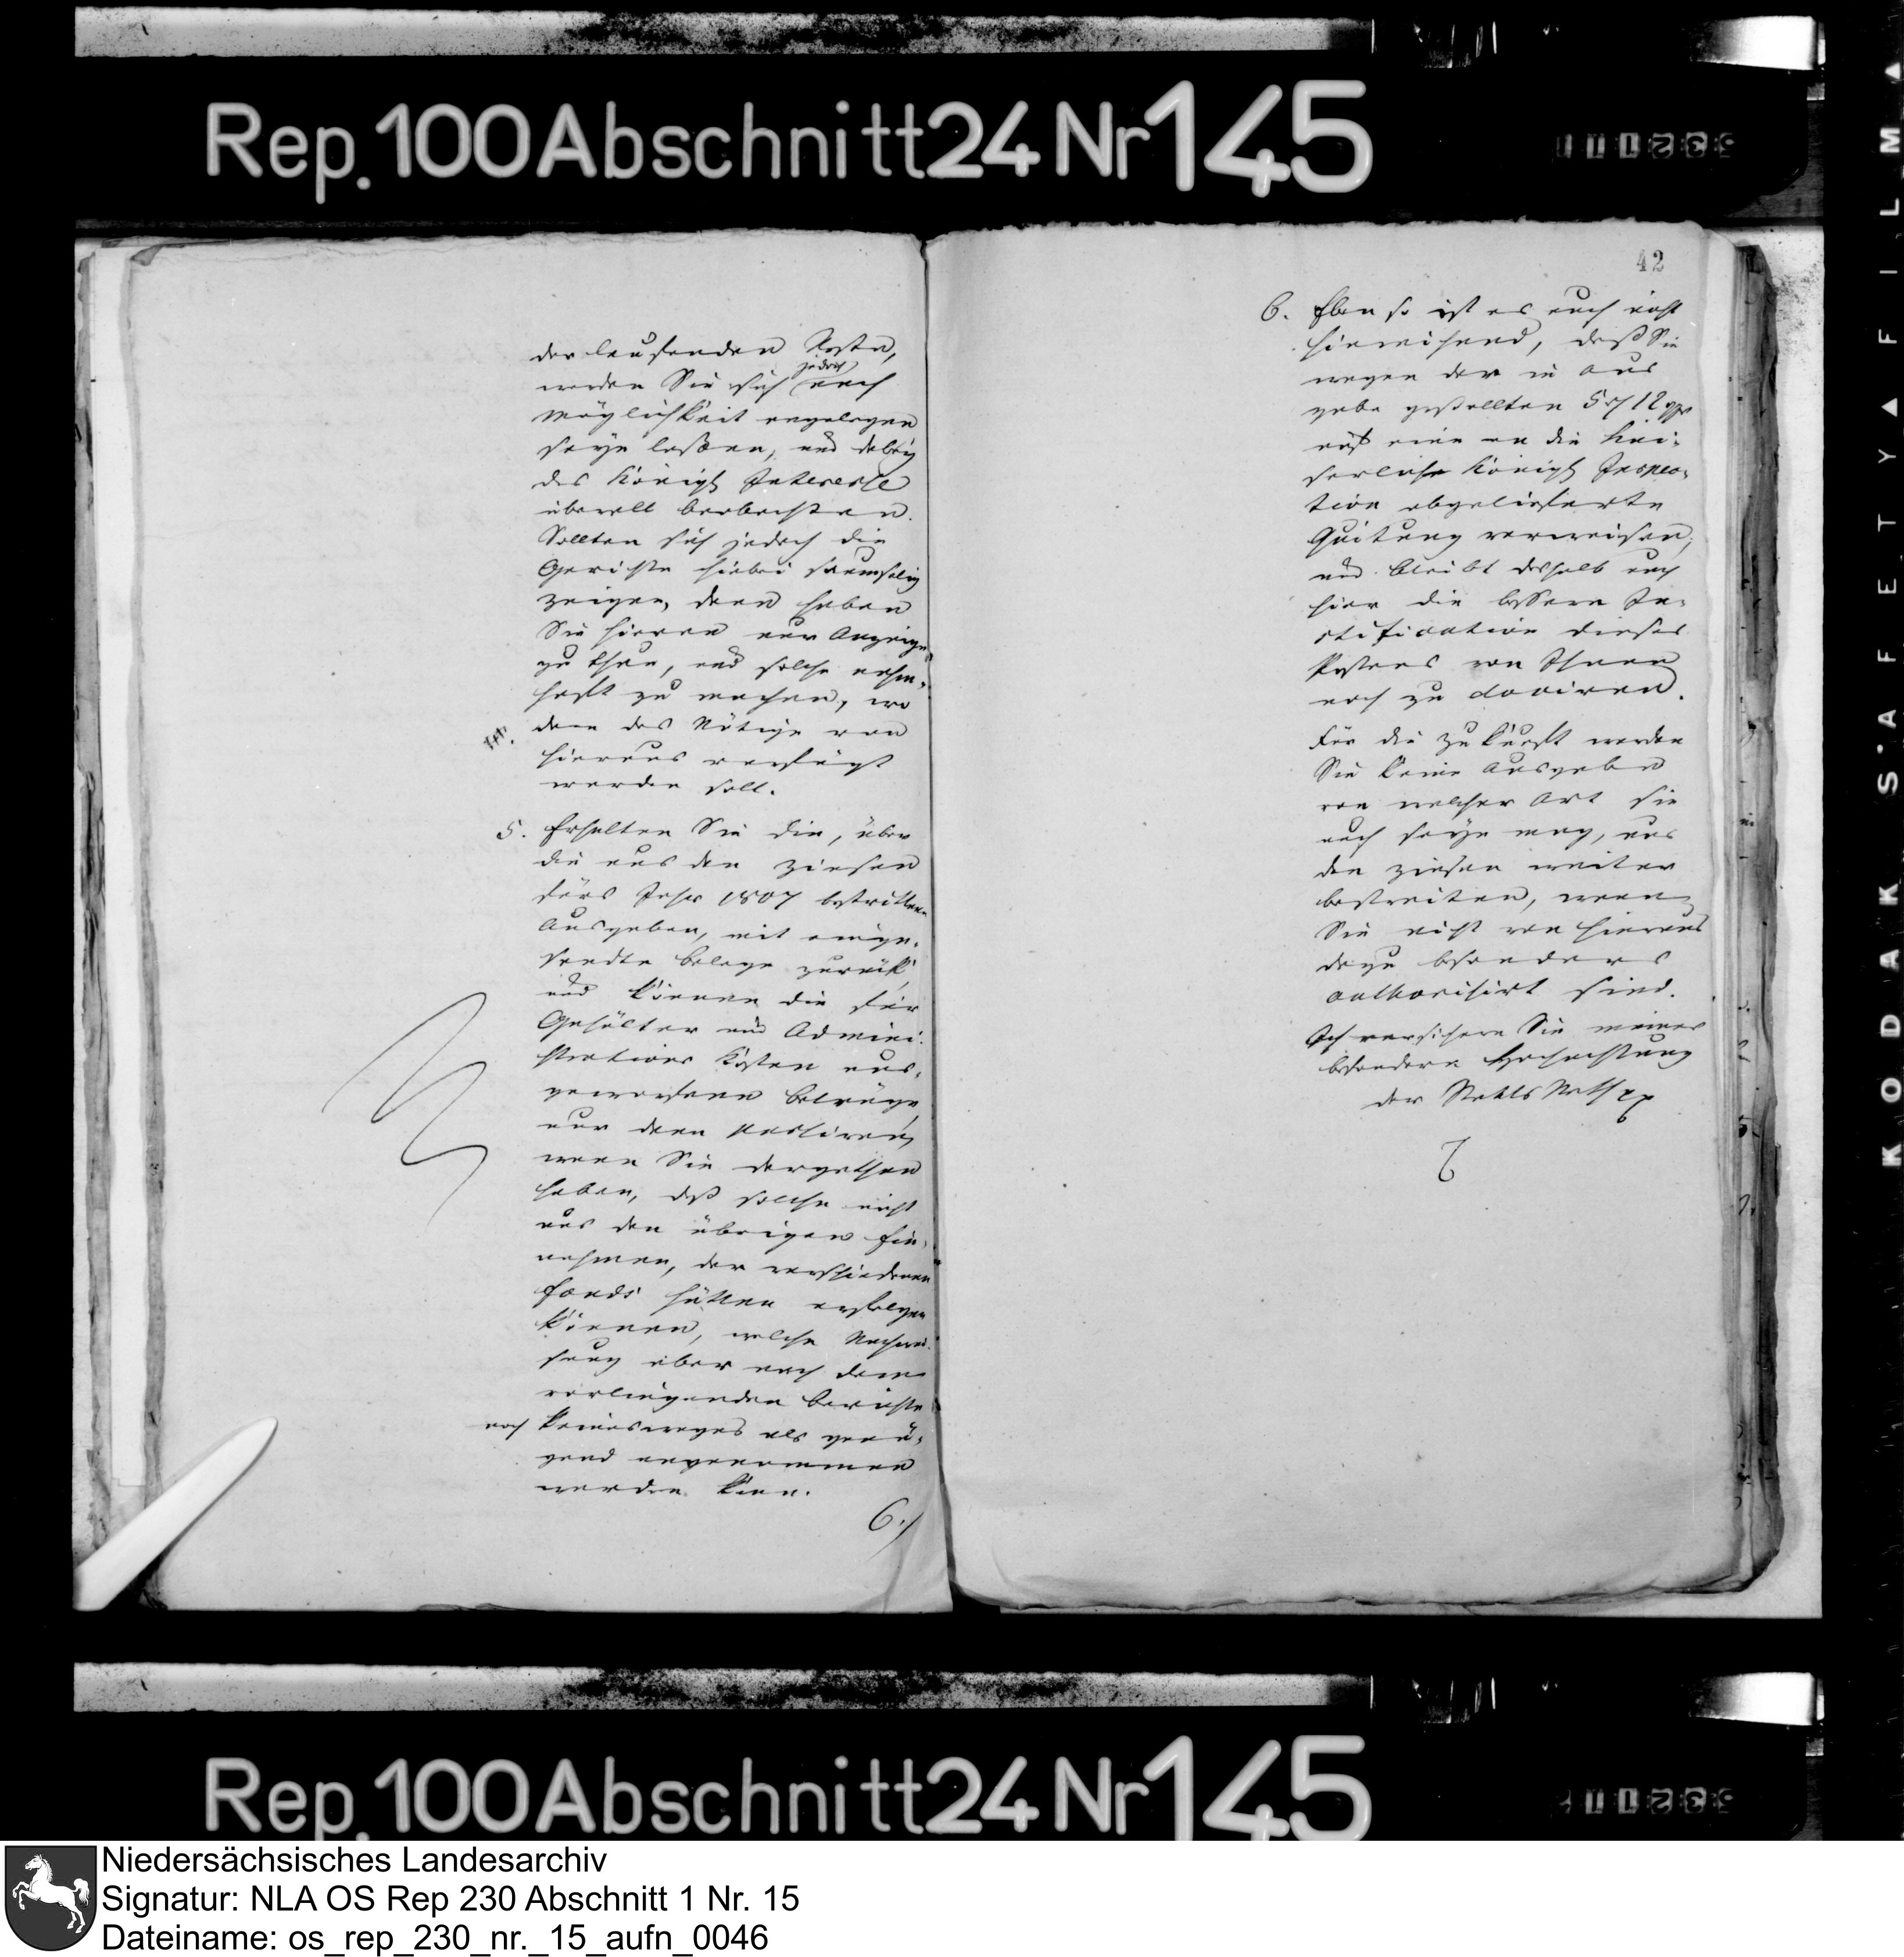 Rep. 100 Abschnitt 24 Nr 145
der laufenden Kosten,
werden Sie sich jedoch nach
Möglichkeit angelegen
seyn laßen, und dabey
das Königl Interesse
überall beobachten.
Sollten sich jedoch die
Gerichte hiebei saumselig
zeigen, dann haben
Sie hievon nur Anzeige
zu thun, und solche nahm-
haft zu machen, wo
dann das Nötige von
hieraus verfügt
werden soll.
5. Erhalten Sie die, über
die aus den Zinsen
fürs Jahr 1807 bestrittene
Ausgaben, mit einge-
sandte Belege zurück
und können die für
Gehälter und Admini-
strations Kosten aus-
geworfene Beträge
nur dann passiren,
wenn Sie dargethan
haben, daß solche nicht
aus den übrigen Ein-
nahmen, der verschiedenen
Fonds hätten erfolgen
können, welche Nachwei-
sung aber nach dem
vorliegenden Berichte
noch keinesweges als genü-
gend angenommen
werden kann.
6./
42
6. Eben so ist es auch nicht
hinreichend, daß Sie
wegen der in Aus
gabe gestellten 5 rt 12 ggr
auf eine an die Kai-
serliche Königl Inspec-
tion abgelieferte
Quitung verweisen,
und bleibt deshalb auch
hier die beßere Ju-
stification dieses
Postens von Ihnen
noch zu dociren.
Für die Zukunft werden
Sie keine Ausgaben
von welcher Art sie
auch seyn mag, aus
den Zinsen weiter
bestreiten, wenn
Sie nicht von hieraus
dazu besonders
authorisirt sind.
Ich versichere Sie meiner
besondern Hochachtung
der Staats Rath pp
KODAK SAFETY FILM
Rep. 100 Abschnitt 24 Nr 145
Niedersächsisches Landesarchiv
Signatur: NLA OS Rep 230 Abschnitt 1 Nr. 15
Dateiname: os_rep_230_nr._15_aufn_0046